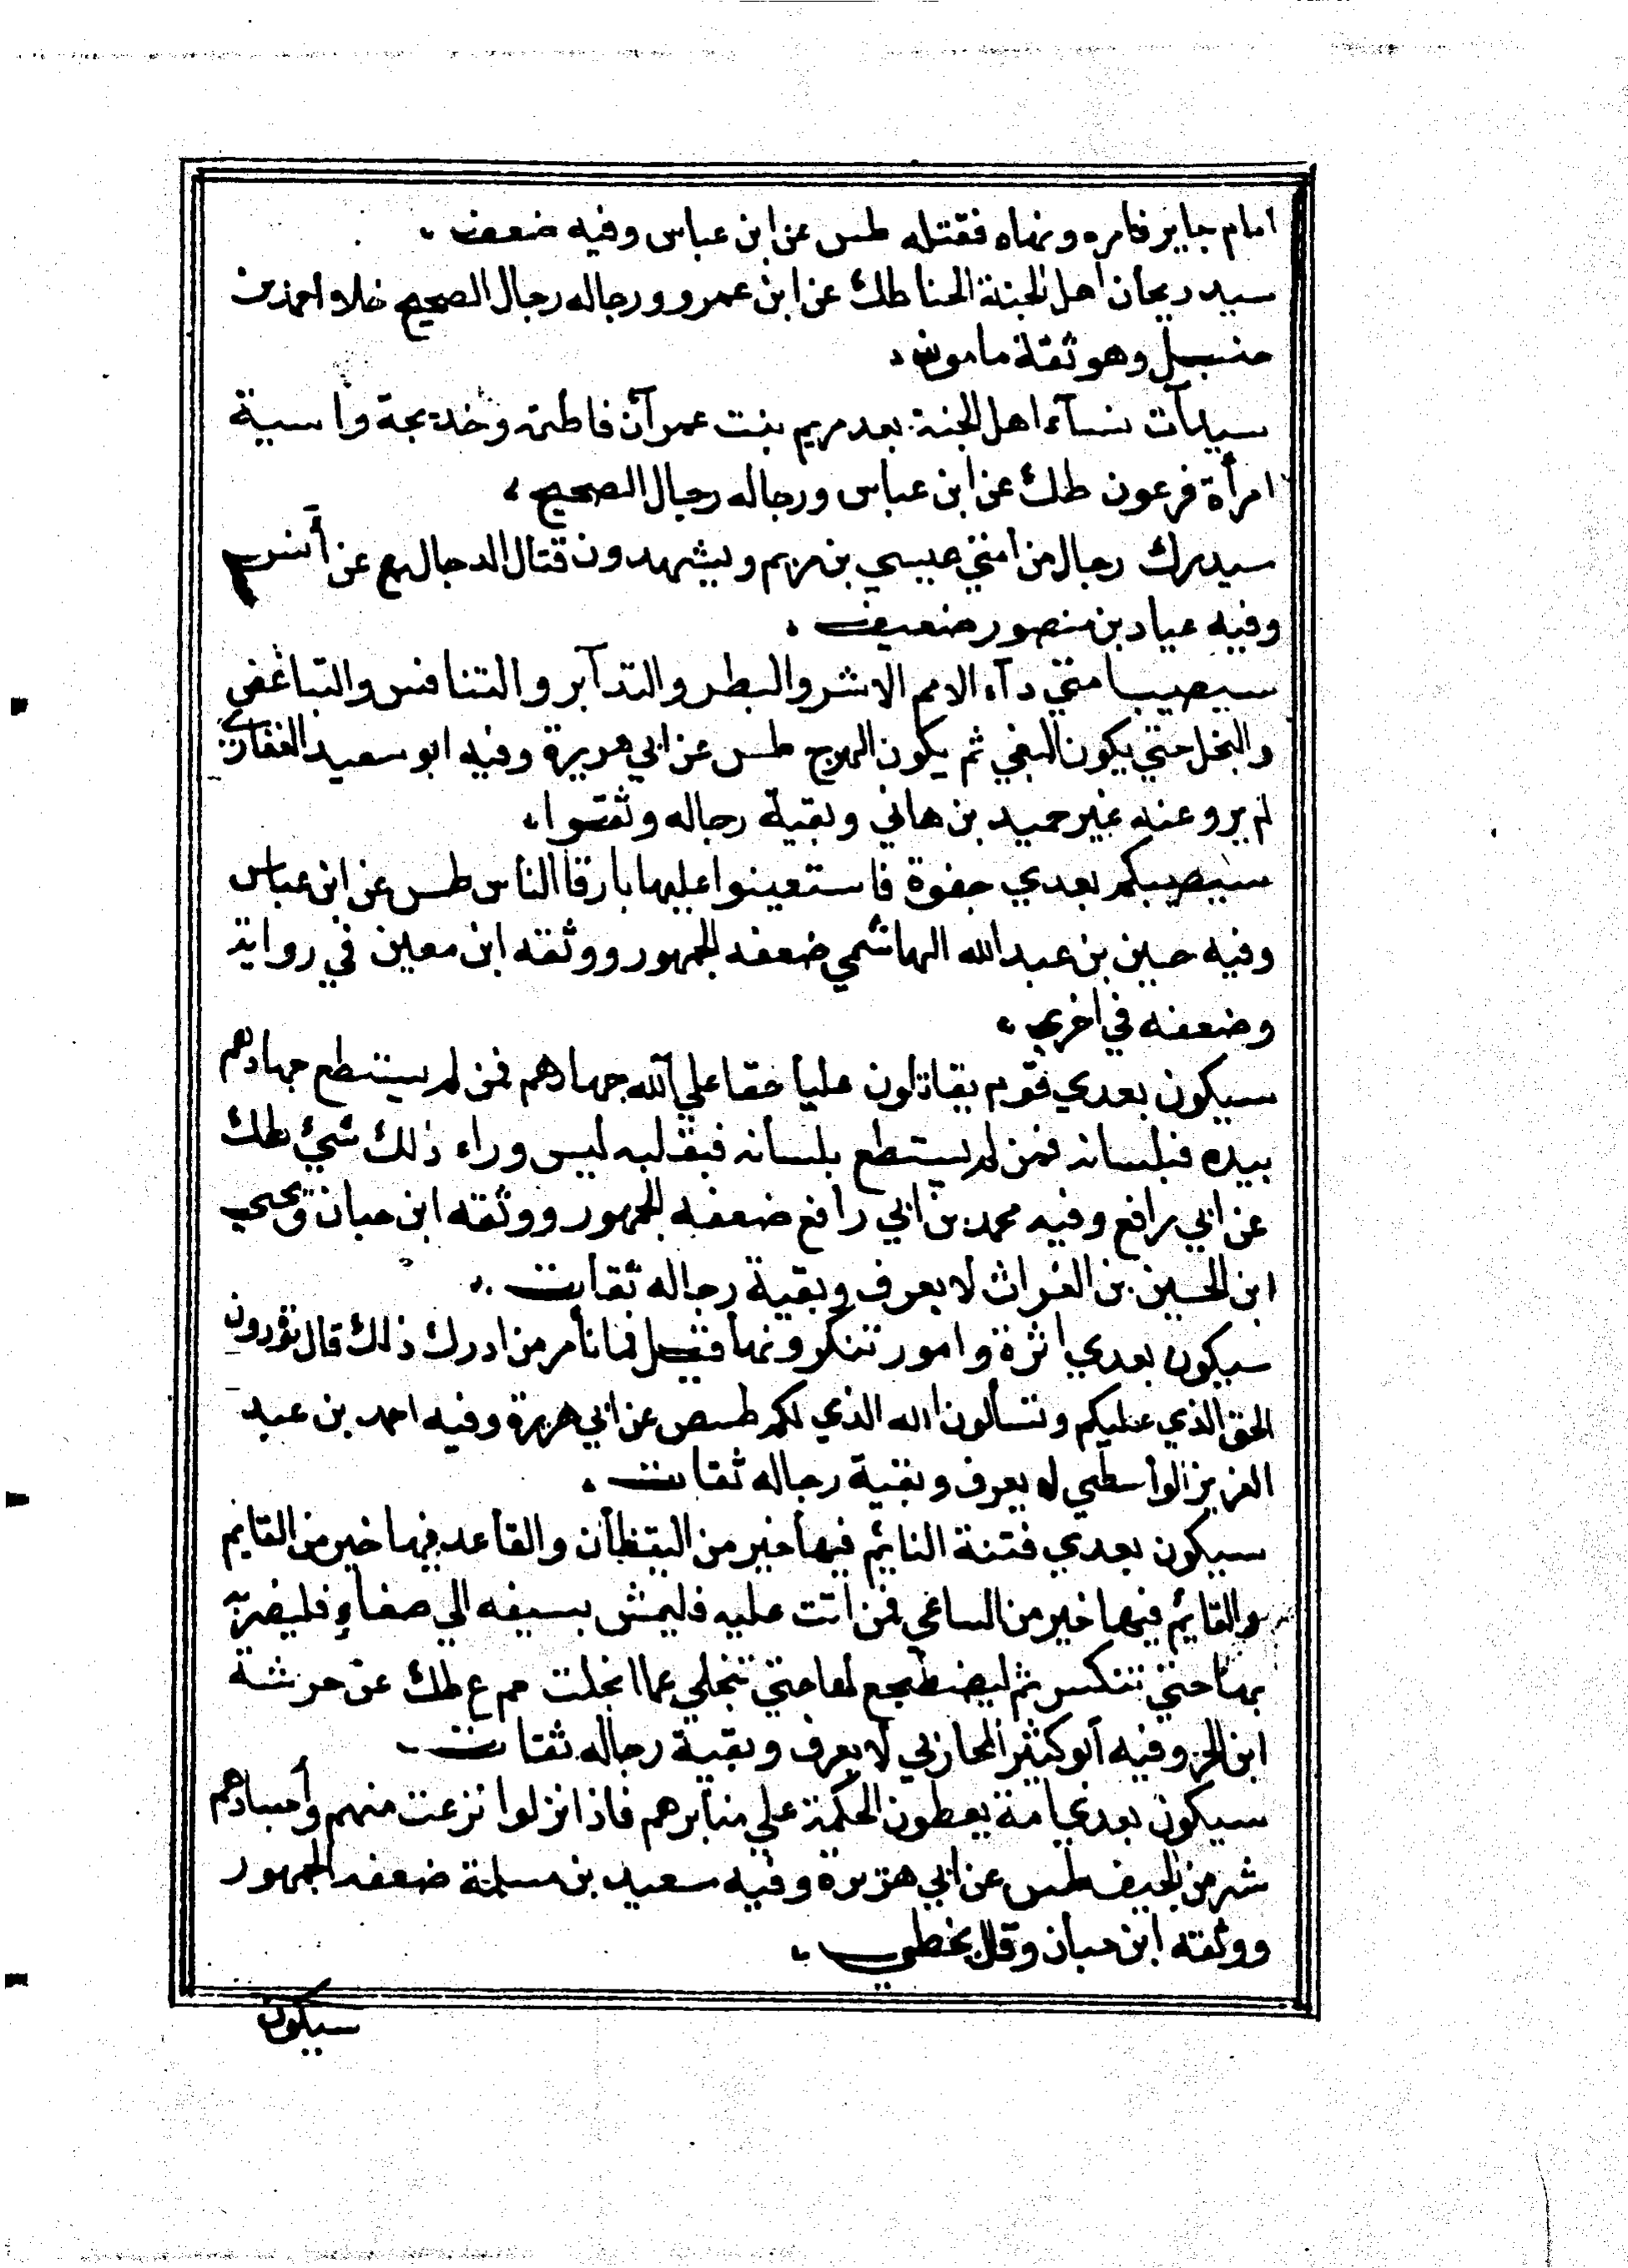 امام جاير فامره ونهاه فقتله طس عن ابن عباس وفيه ضعف
سيد ريحان اهل الجنة الحنا طك عن ابن عمرو ورجاله رجال الصحيح خلا احمد بن
حنبل وهو ثقة مامون
سيدآت نسآء اهل الجنة بعد مريم بنت عمرآن فاطمة وخديجة واسية
امرأة فرعون طك عن ابن عباس ورجاله رجال الصحيح
سيدرك رجال من امتي عيسي بن مريم ويشهدون قتال الدجال ع عن أنس
وفيه عباد بن منصور ضعيف
سيصيب امتي دآء الامم الاشر والبطر والتدآبر والتنافس والتباغض
والبخل حتي يكون البغي ثم يكون الهرج طس عن ابي هريرة وفيه ابو سعيد الغفاري
لم يرو عنه غير حميد بن هاني وبقية رجاله وثقوا
سيصيبكم بعدي جفوة فاستعينوا عليها بارقا الناس طس عن ابن عباس
وفيه حسين بن عبد الله الهاشمي ضعفه الجمهور ووثقه ابن معين في رواية
وضعفه في اخري
سيكون بعدي قوم يقاتلون عليا حقا علي آلله جهادهم فمن لم يستطع جهادهم
بيده فبلسانه فمن لم يستطع بلسانه فبقلبه ليس وراء ذلك شيئ طك
عن ابي رافع وفيه محمد بن ابي رافع ضعفه الجمهور ووثقه ابن حبان ويحيي
ابن الحسين بن الفرات لا يعرف وبقية رجاله ثقات
سيكون بعدي اثرة وامور تنكرونها فقيل فما نأمر من ادرك ذلك قال تؤدون
الحق الذي عليكم وتسألون الله الذي لكم طس ص عن ابي هريرة وفيه احمد بن عبد
العزيز الواسطي لم يعرف وبقية رجاله ثقات
سيكون بعدي فتنة النايم فيها خير من اليقظان والقاعد فيها خير من القايم
والقايم فيها خير من الساعي فمن اتت عليه فليمش بسيفه الي صفاة فليضربه
بها حتي تنكسر ثم ليضطجع لها حتي تنجلي عما انجلت حم ع طك عن خرشة
ابن الحر وفيه أبو كثير المحاربي لا يعرف وبقية رجاله ثقات
سيكون بعدي امة يعطون الحكمة علي منابرهم فاذا نزلوا نزعت منهم وأجسادهم
شر من الجيف طس عن ابي هريرة وفيه سعيد بن مسلمة ضعفه الجمهور
ووثقه ابن حبان وقال يخطي
سيكون